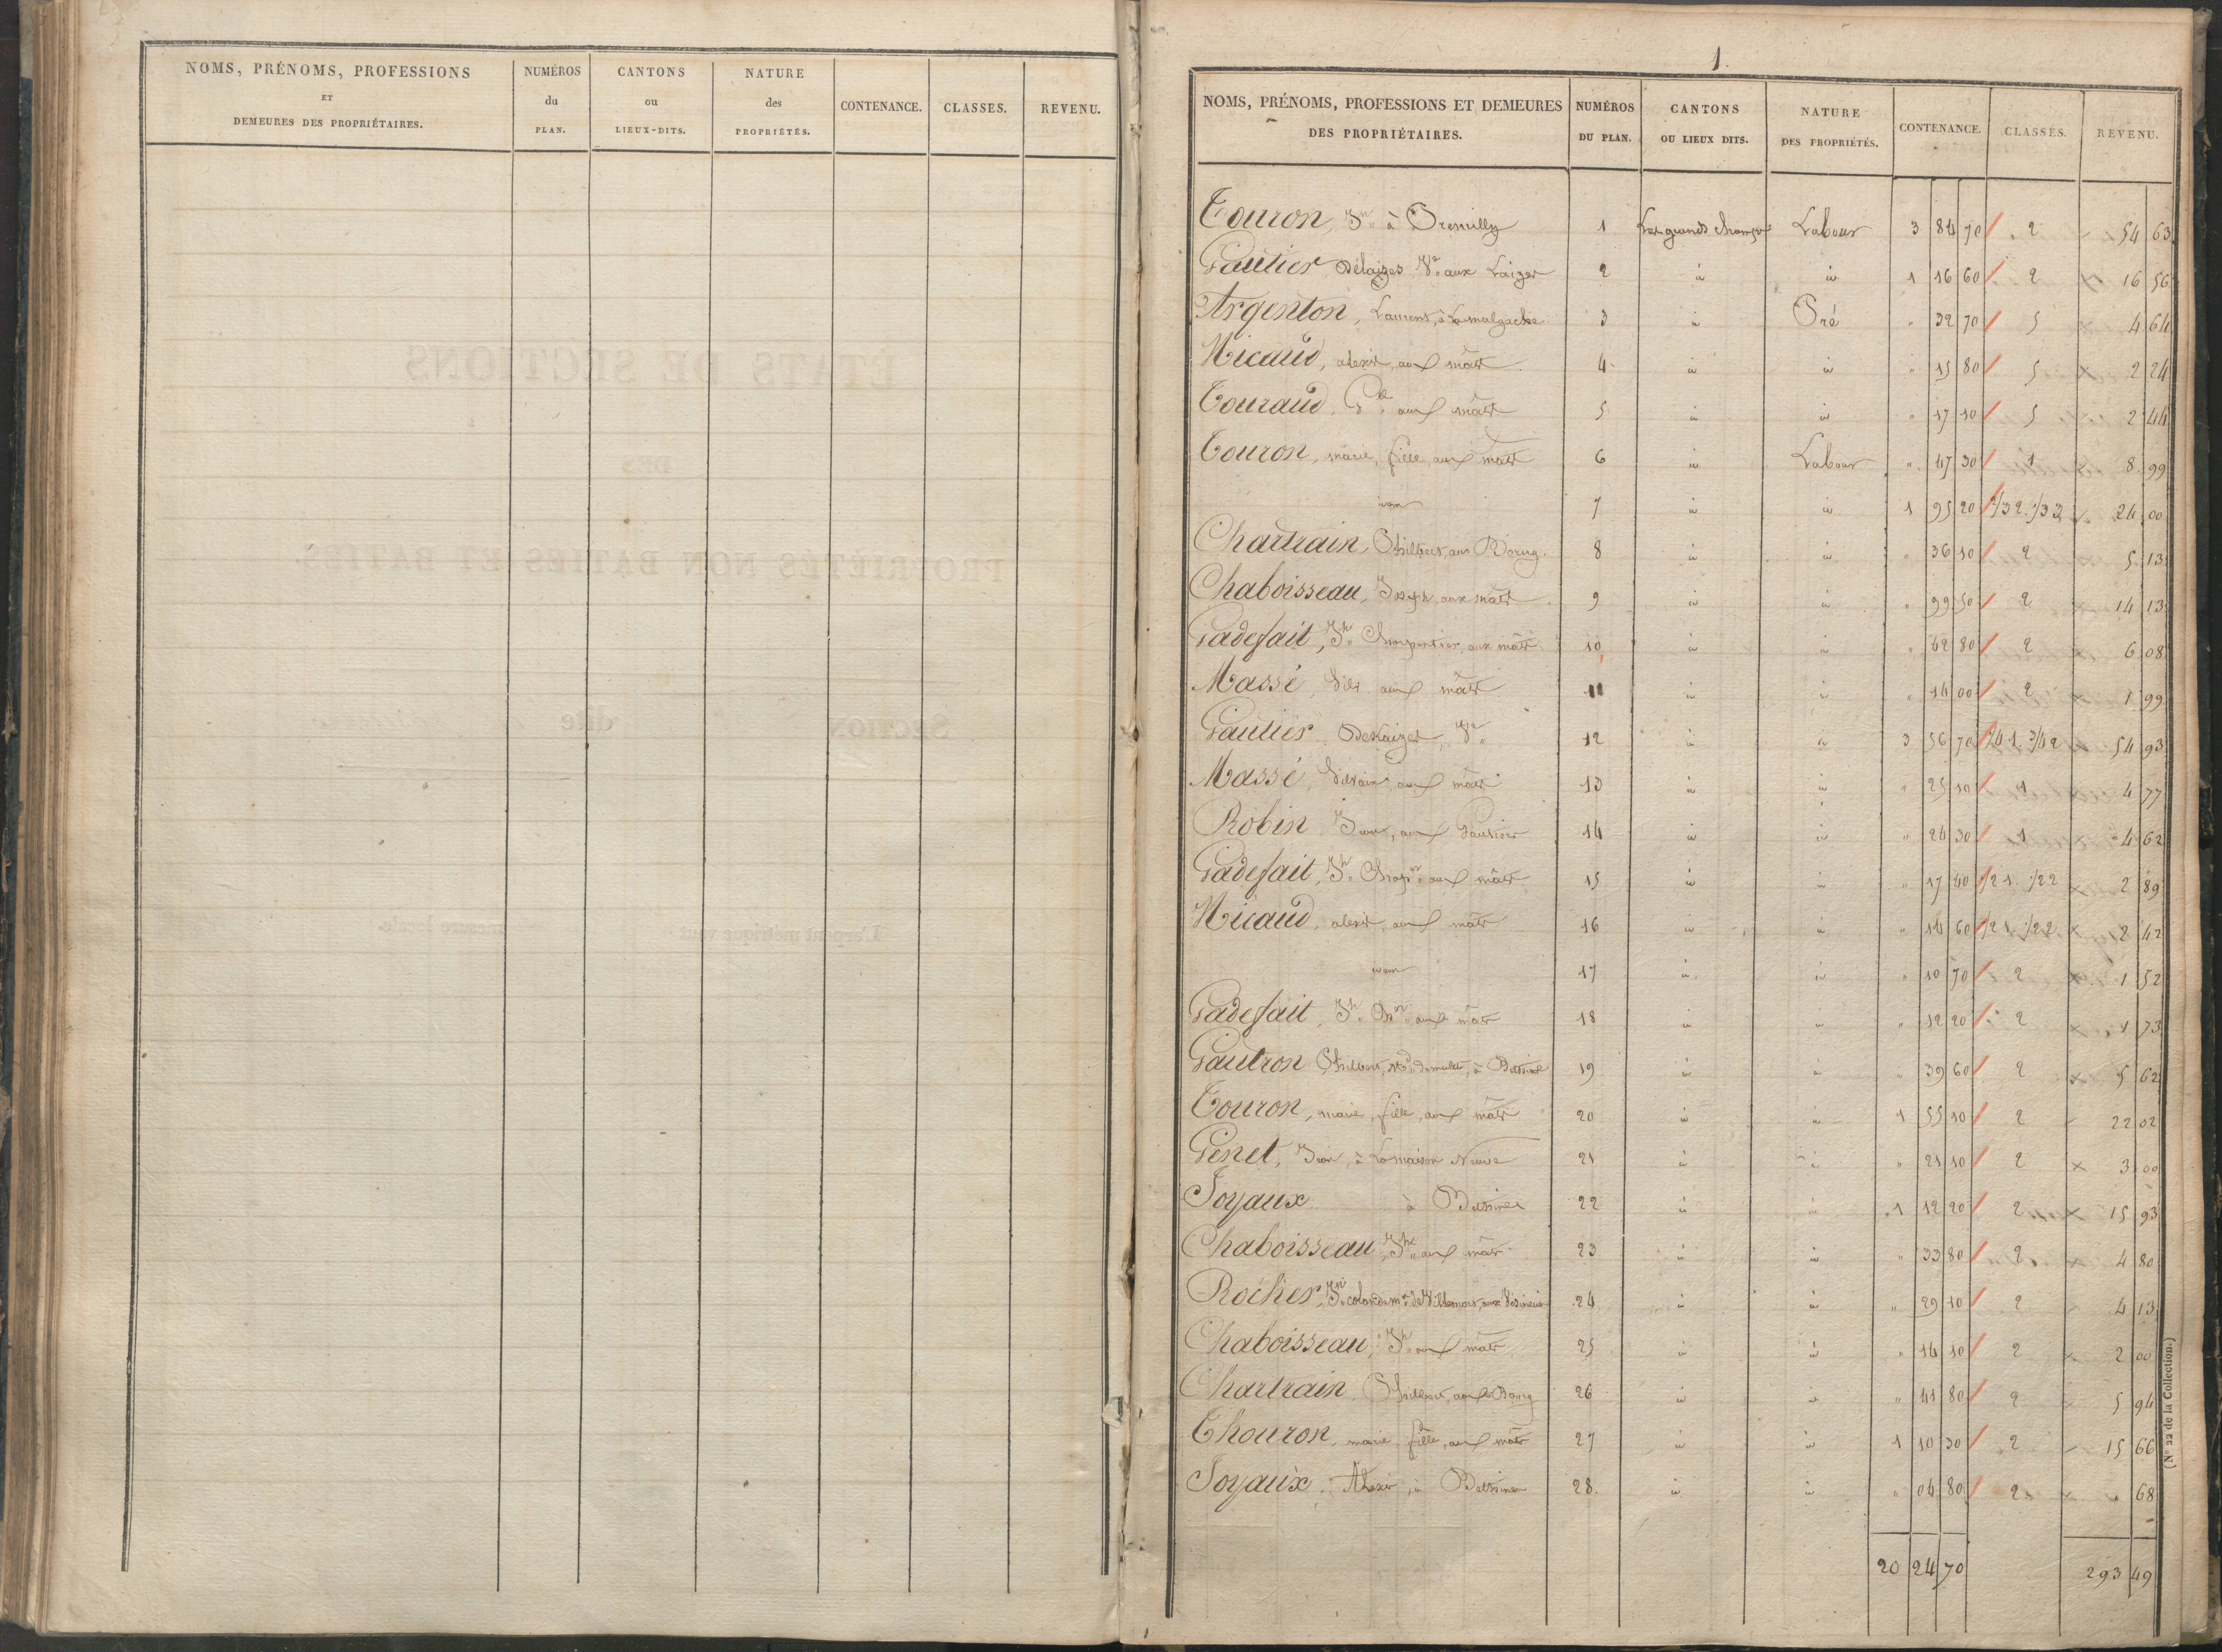 NOMS, PRÉNOMS, PROFESSIONS
ET
DEMEURES DES PROPRIÉTAIRES.
NUMÉROS
du
PLAN.
CANTONS
ou
LIEUX-DITS.
NATURE
des
PROPRIÉTÉS.
CONTENANCE.
CLASSES.
REVENU.
1.
NOMS, PRÉNOMS, PROFESSIONS ET DEMEURES
DES PROPRIÉTAIRES.
NUMÉROS
DU PLAN.
CANTONS
OU LIEUX DITS.
NATURE
DES PROPRIÉTÉS.
CONTENANCE.
CLASSES.
REVENU.
Touron, Jn à 1 Les grands champs Labour 3 84 70 2 54 63
Gautier Délaiges Ve aux Laiges 2 id id 1 16 60 2 16 56
Argenton, Laurent, à Lamalgache 3 id Pré " 32 70 5 4 64
Micaud, alexis, aux mâts 4 id id " 15 80 5 2 24
Touraud, aux mâts 5 id id " 17 10 5 2 44
Touron, marie, fille, aux mâts 6 id Labour " 47 30 1 8 99
idem 7 id id 1 95 20 24 00
Chartrain, Philbert, au Bourg 8 id id " 36 10 2 5 13
Chaboisseau, Joseph, aux mâts 9 id id " 99 50 2 14 13
Padefait, Jh Charpentier, aux mâts 10 id id " 42 80 2 6 08
Massé, Silv aux mâts 11 id id " 14 00 2 1 99
Gautier Delaiges, Ve 12 id id 3 56 70 1/4 1. 3/4 2 54 93
Massé, Silvain, aux mâts 13 id id " 25 10 1 4 77
Robin Jean, aux Gautier 14 id id " 24 30 1 4 62
Padefait, Jh Charp aux mâts 15 id id " 17 40 1/2 1. 1/2 2 2 89
Micaud, alexis, aux mâts 16 id id " 14 60 1/2 1 1/2 2 2 42
idem 17 id id " 10 70 2 1 52
Padefait, Jh aux mâts 18 id id " 12 20 2 1 73
Gautron Philbert, à Bessines 19 id id " 39 60 2 5 62
Touron, marie, fille, aux mâts 20 id id 1 55 10 2 22 02
Penet, Jean, à La maison Neuve 21 id id " 21 10 2 3 00
Joyaux à Bessines 22 id id 1 12 20 2 15 93
Chaboisseau, Jh aux mâts 23 id id " 33 80 2 4 80
Rocher, Jn colon 24 id id " 29 10 2 4 13
Chaboisseau, Jh aux mâts 25 id id " 14 10 2 2 00
Chartrain Philbert, au Bourg 26 id id " 41 80 2 5 94
Thouron, marie, fille, aux mâts 27 id id 1 10 30 2 15 66
Joyaux, Alexis, à Bessines 28 id id " 04 80 2 " 68
20 24 70 293 49
(N° 22 de la Collection.)